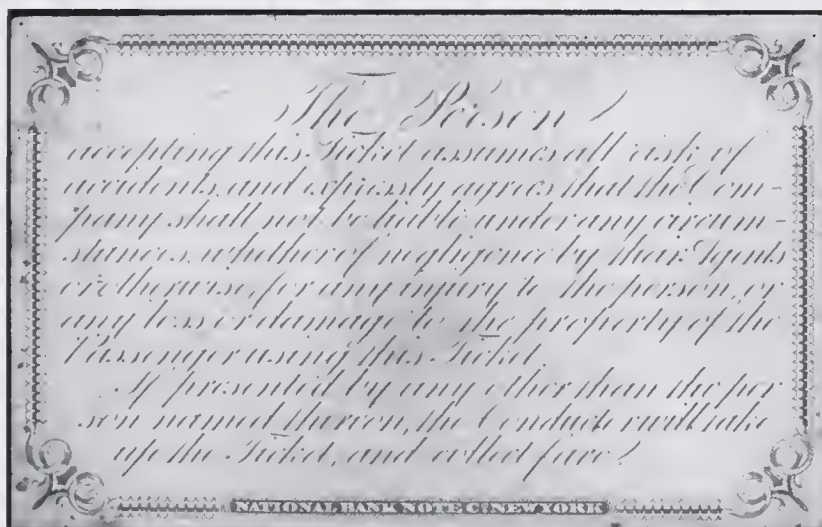 The Person
accepting this Ticket assumes all risk of
accidents, and expressly agrees that the Com-
pany shall not be liable under any circum-
stances, whether of negligence by their Agents
or otherwise, for any injury to the person, or
any loss or damage to the property of the
Passenger using this Ticket.
If presented by any other than the per
son named thereon, the Conductor will take
up the Ticket, and collect fare.
NATIONAL BANK NOTE CO. NEW YORK